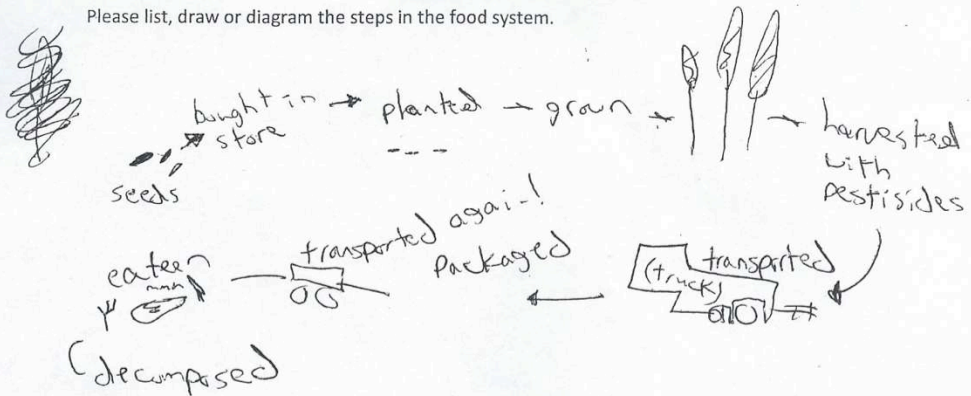 Please list, draw or diagram the steps in the food system.
seeds
bought in
store
planted
grown
harvested
with
pestisides
transported
(truck)
packaged
transported again!
eateen
mmm
decomposed